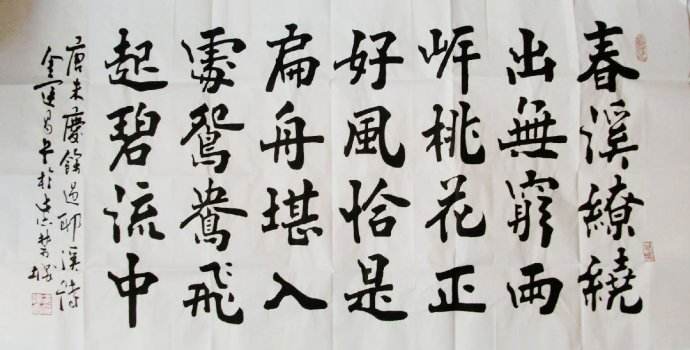 春溪繚繞
出無窮兩
岸桃花正
好風恰是
扁舟堪入
處鴛鴦飛
起碧流中
唐朱慶餘過耶溪詩
金運昌書於